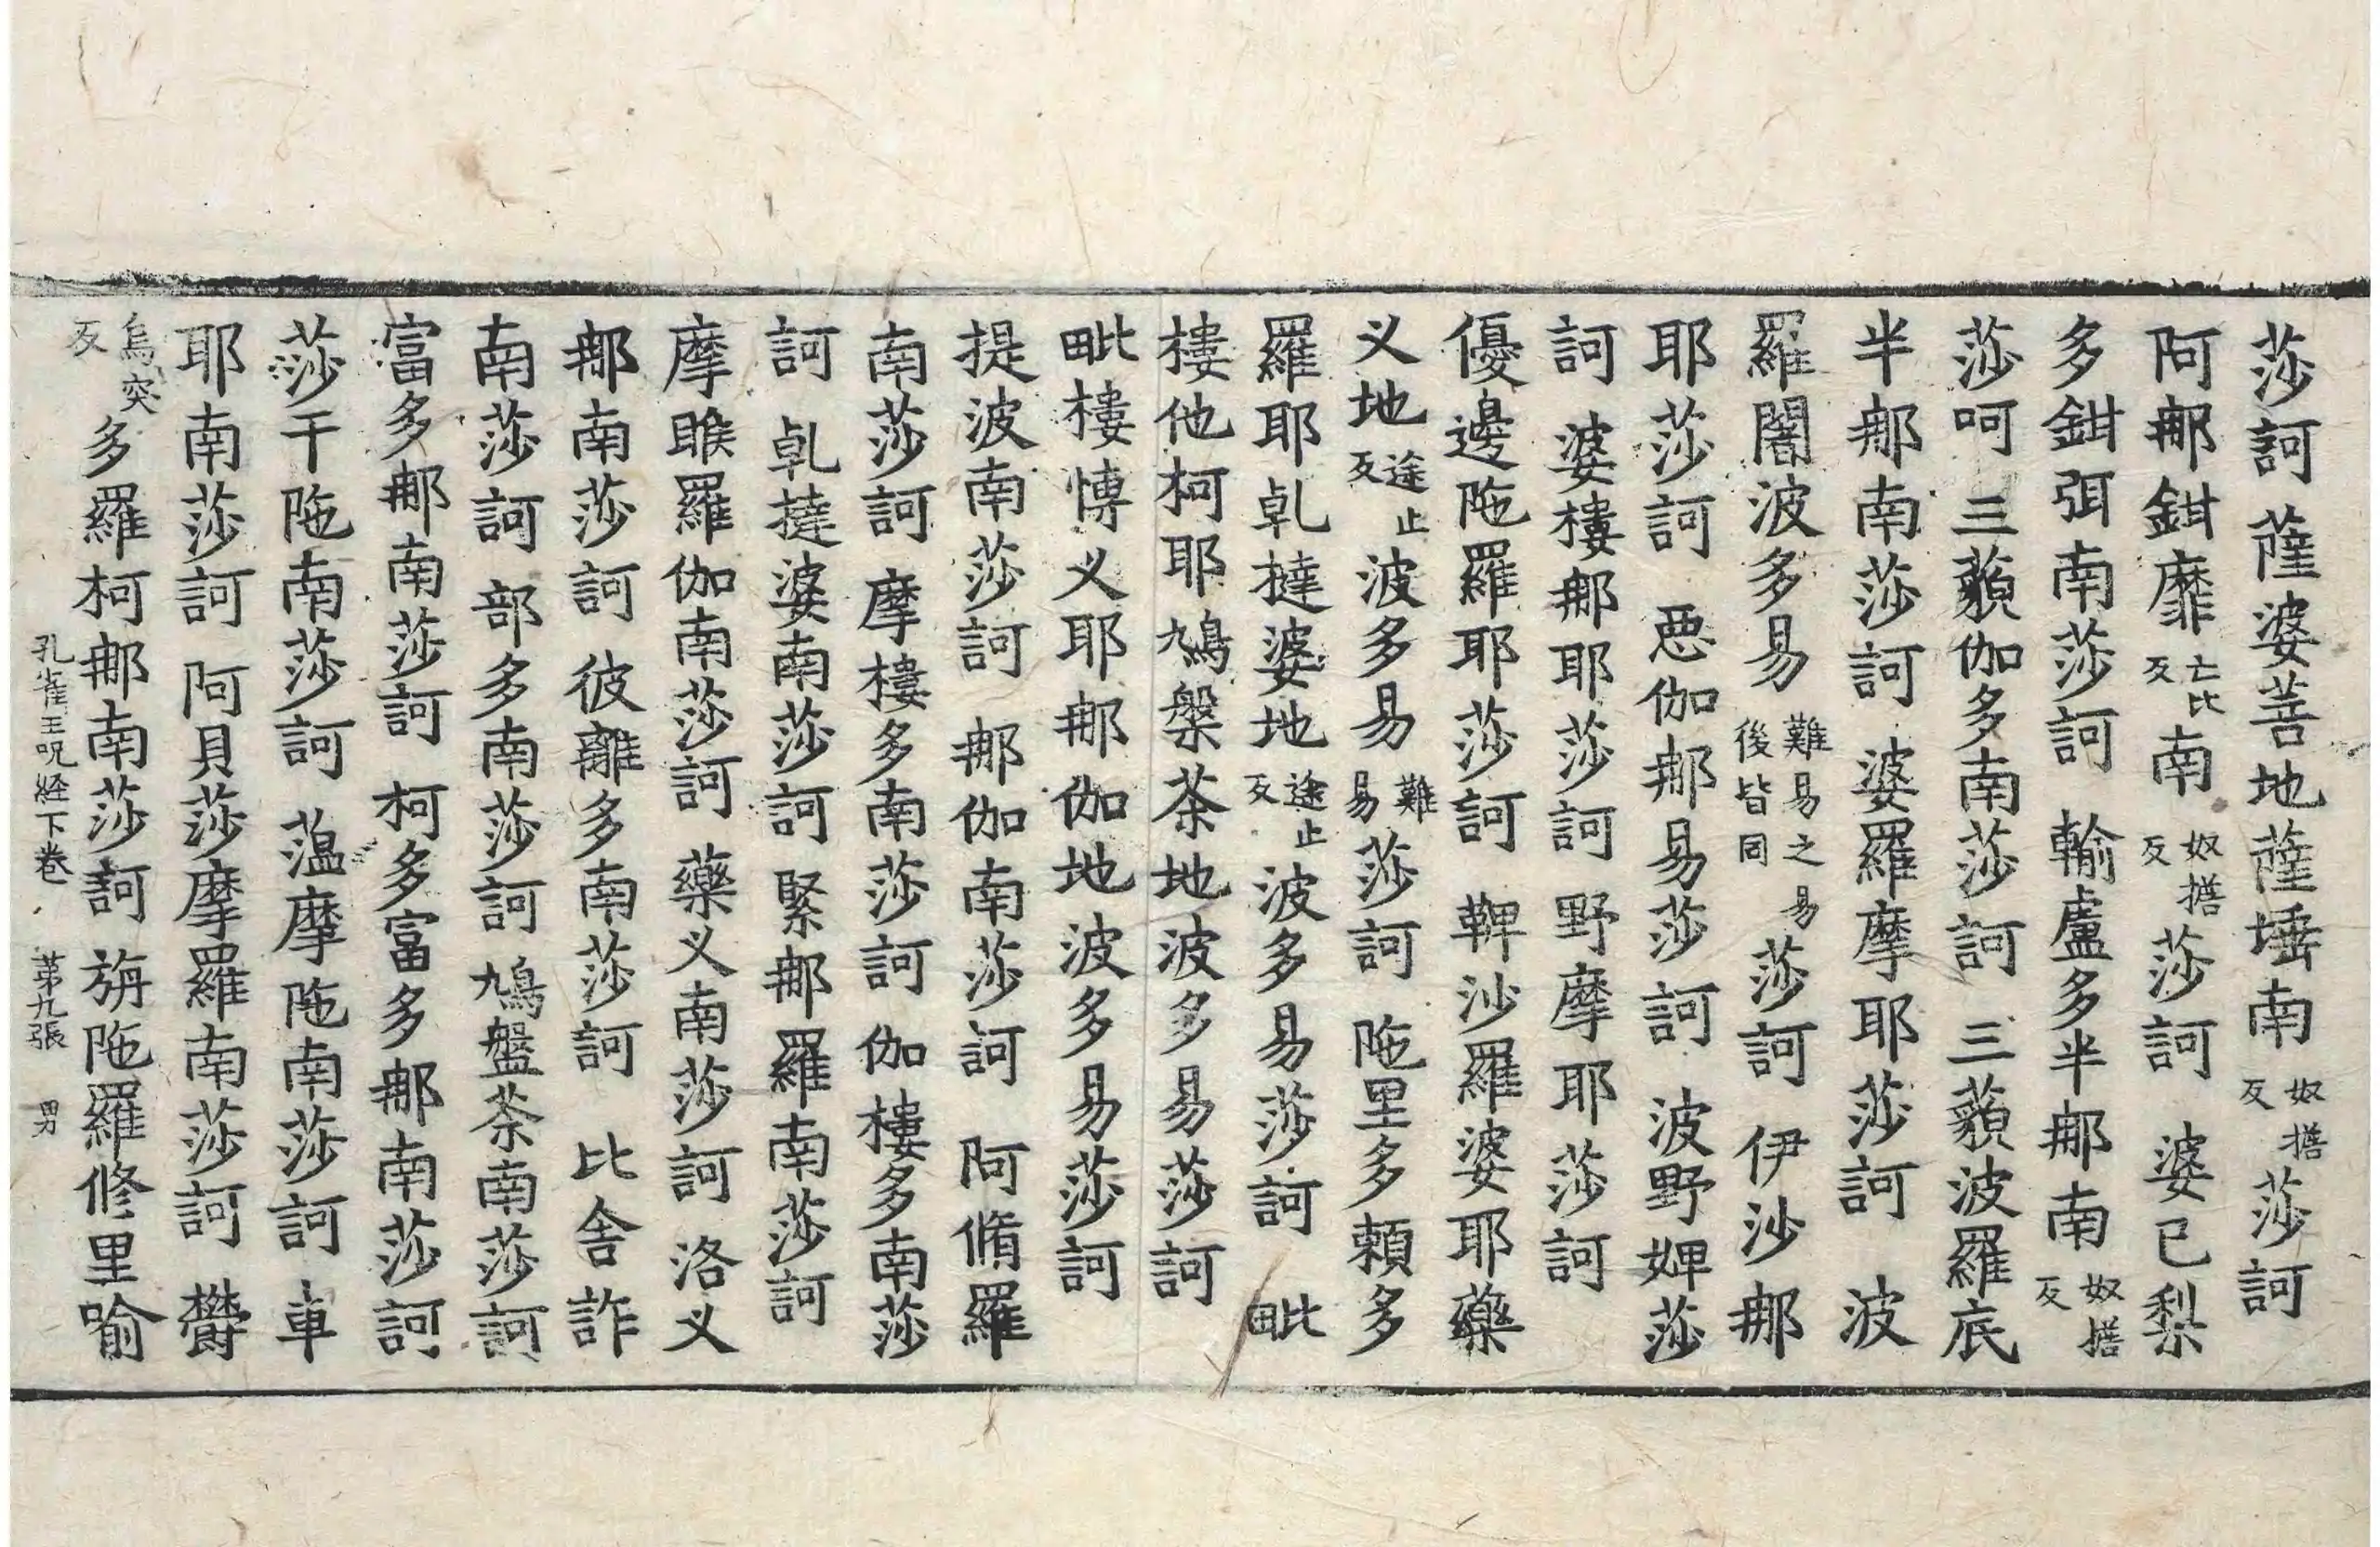 莎訶 薩婆菩地薩埵南奴搭反莎訶
阿那鉗靡亡比反南奴搭反莎訶 婆已梨
多鉗弭南莎訶 輸盧多半那南奴搭反
莎呵 三藐伽多南莎訶 三藐波羅底
半那南莎訶 婆羅摩耶莎訶 波
羅闍波多易難易之易後皆同莎訶 伊沙那
耶莎訶 惡伽那易莎訶 波野婢莎
訶 婆樓那耶莎訶 野摩耶莎訶
優邊陁羅耶莎訶 鞞沙羅婆耶藥
义地途止反波多易難易莎訶 陁里多頼多
羅耶乹撻婆地途止反波多易莎訶 毗
樓他柯耶鳩槃茶地波多易莎訶
毗樓博义耶那伽地波多易莎訶
提波南莎訶 那伽南莎訶 阿脩羅
南莎訶 摩樓多南莎訶 伽樓多南莎
訶 乹撻婆南莎訶 緊那羅南莎訶
摩睺羅伽南莎訶 藥义南莎訶 洛义
那南莎訶 彼離多南莎訶 比舍詐
南莎訶 部多南莎訶 鳩盤茶南莎訶
富多那南莎訶 柯多富多那南莎訶
莎干陁南莎訶 薀摩陁南莎訶 車
耶南莎訶 阿貝莎摩羅南莎訶 欝
烏突反多羅柯那南莎訶 旃陁羅修里喻
孔雀王呪経下卷 第九張 男